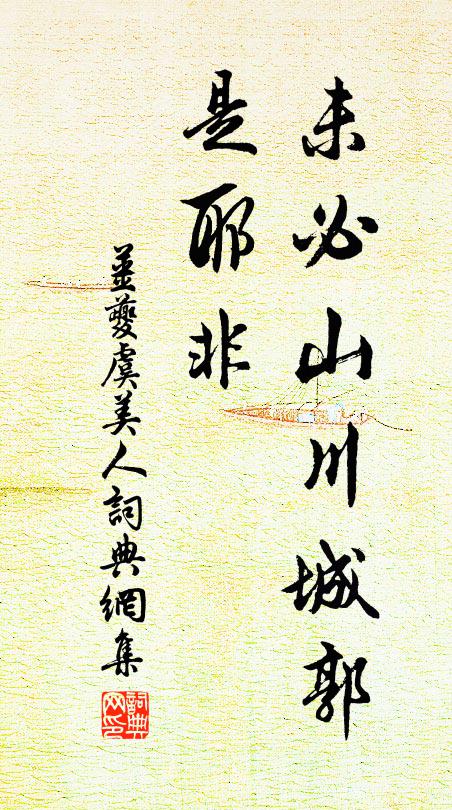 未必山川城郭
是耶非
姜夔虞美人詞典網集
詞典
网印